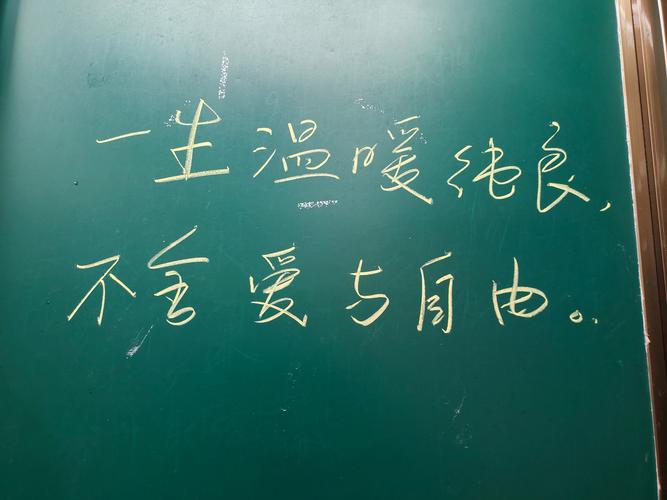 一生温暖纯良,
不舍爱与自由。